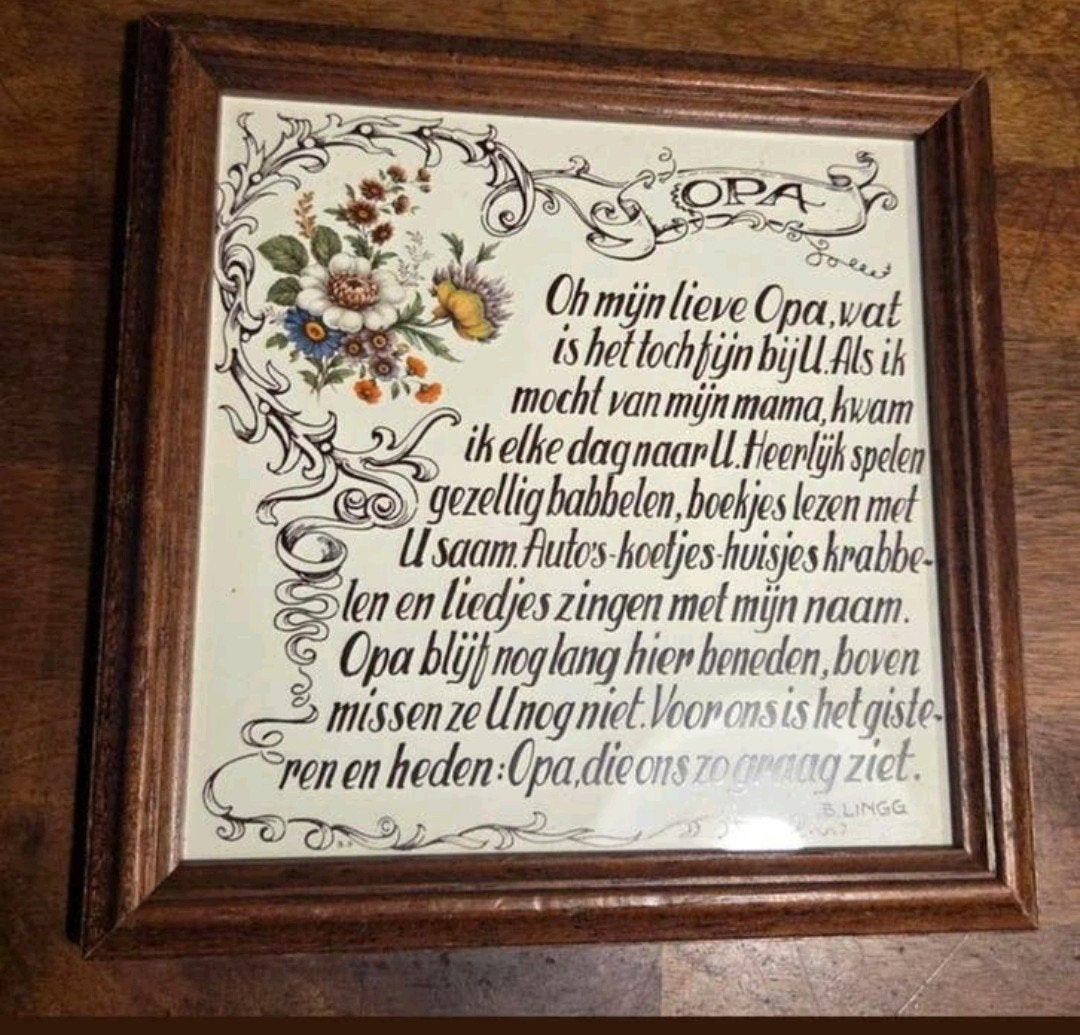 OPA
Oh mijn lieve Opa, wat
is het toch fijn bij U. Als ik
mocht van mijn mama, kwam
ik elke dag naar U. Heerlijk spelen
gezellig babbelen, boekjes lezen met
U saam. Auto's-koetjes-huisjes krabbe-
len en liedjes zingen met mijn naam.
Opa blijf nog lang hier beneden, boven
missen ze U nog niet. Voor ons is het giste-
ren en heden: Opa, die ons zo graag ziet.
B. LINGG